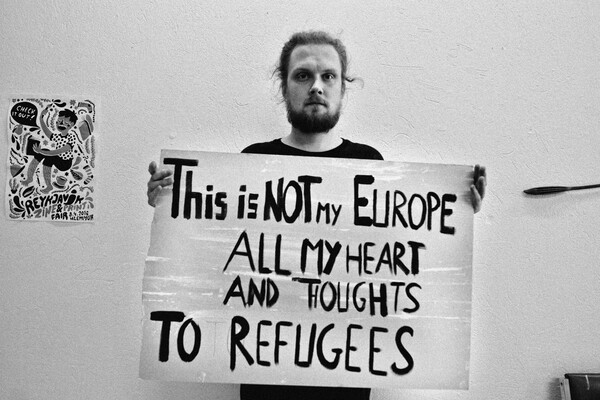 This is NOT MY EUROPE
ALL MY HEART
AND THOUGHTS
TO REFUGEES
CHECK
IT OUT!
REYKJAVIK
ZINE & PRINT
FAIR